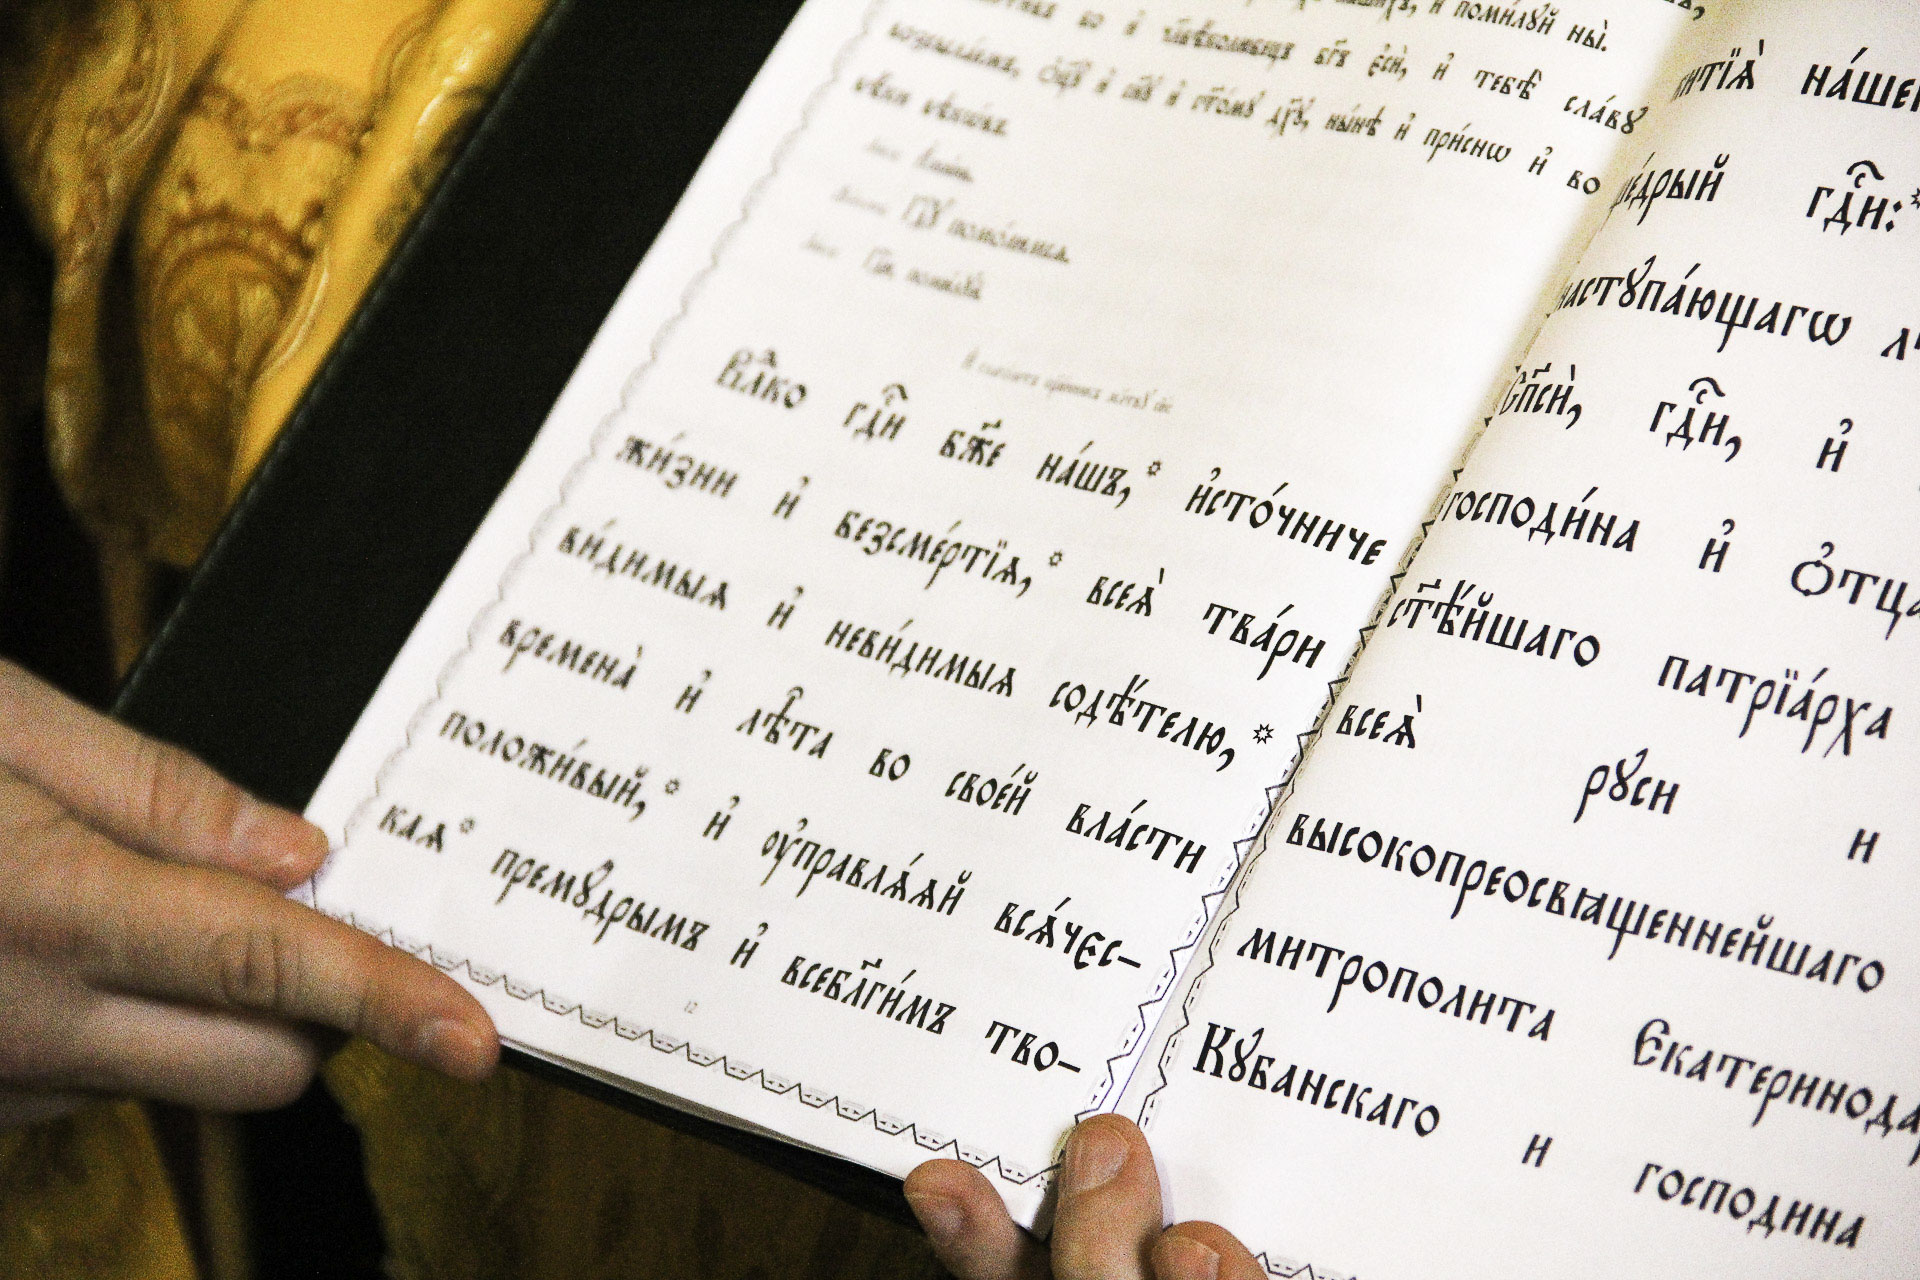 и҆ поми́лꙋй ны̀.
во и҆ чл҃вѣколю́бецъ бг҃ъ є҆сѝ, и҆ тебѣ̀ сла́вꙋ
возсыла́емъ, Ѻ҆ц҃ꙋ̀ и҆ сн҃ꙋ и҆ ст҃о́мꙋ дх҃ꙋ, ны́нѣ и҆ при́снѡ и҆ во
вѣ́ки вѣкѡ́въ.
Гдⷭ҇ꙋ помо́лимсѧ.
Гдⷭ҇и поми́лꙋй
Влⷣко гдⷭ҇и бж҃е на́шъ,* и҆сто́чниче
жи́зни и҆ безсме́ртїѧ,* всеѧ̀ тва́ри
ви́димыѧ и҆ неви́димыѧ содѣ́телю,*
времена̀ и҆ лѣ̑та во свое́й вла́сти
положи́вый,* и҆ ᲂу҆правлѧ́ѧй всѧ́чес–
каѧ* премꙋ́дрымъ и҆ всебл҃ги́мъ тво–
12
на́шег
гдⷭ҇и:*
настꙋпа́ющагѡ
Сп҃сѝ, гдⷭ҇и, и҆
господи́на и҆ ѻ҆тца
ст҃ѣ́йшаго патрїа́рха
всеѧ̀ рꙋси и
высокопреосвѧщеннейшаго
митрополита Екатеринода
Кꙋбанскаго и господина